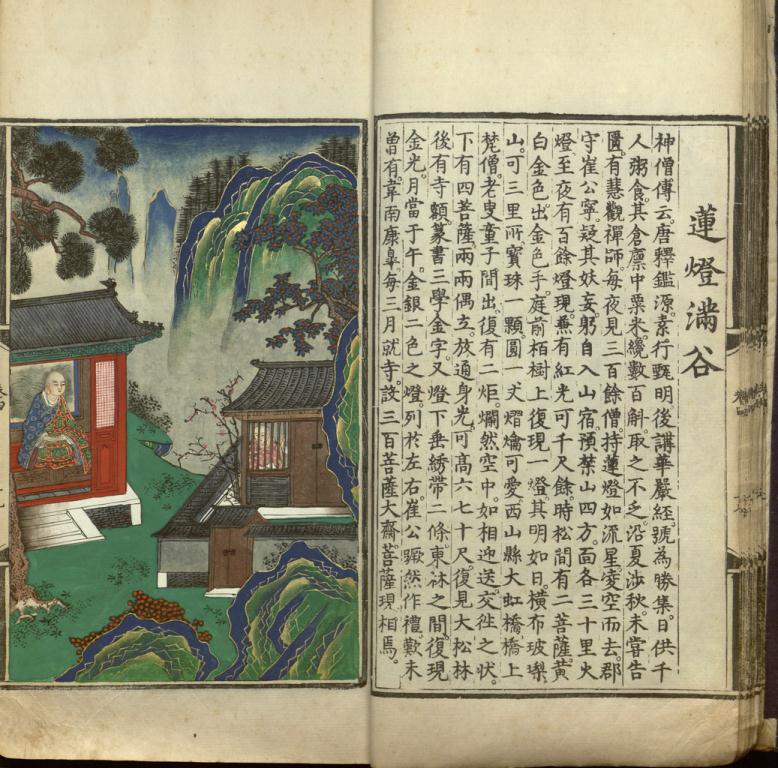 蓮燈滿谷
神僧傳云。唐釋鑑源。素行甄明。後講華嚴經。號為勝集。日供千
人粥食。其倉廩中粟米。纔數百斛。取之不乏。沿夏涉秋。未嘗告
匱。有慧觀禪師。每夜見三百餘僧。持蓮燈如流星。凌空而去。郡
守崔公寧。疑其妖妄。躬自入山宿。預禁山四方。面各三十里火
燈。至夜有百餘燈現。兼有紅光可千尺餘。時松間有二菩薩。黃
白金色。出金色手。庭前柏樹上。復現一燈。其明如日。橫布玻瓈
山。可三里所。寶珠一顆。圓一丈。熠爚可愛。西山縣大虹橋。橋上
梵僧。老叟童子間出。復有二炬。爛然空中。如相迎送。交徃之狀。
下有四菩薩。兩兩偶立。放通身光。可高六七十尺。復見大松林
後有寺額。篆書三學金字。又燈下垂綉帶二條。東林之間。復現
金光。月當于午。金銀二色之燈。列於左右。崔公蹶然作禮。歎未
曾有。韋南康臯。每三月就寺。設三百菩薩大齋。菩薩現相焉。